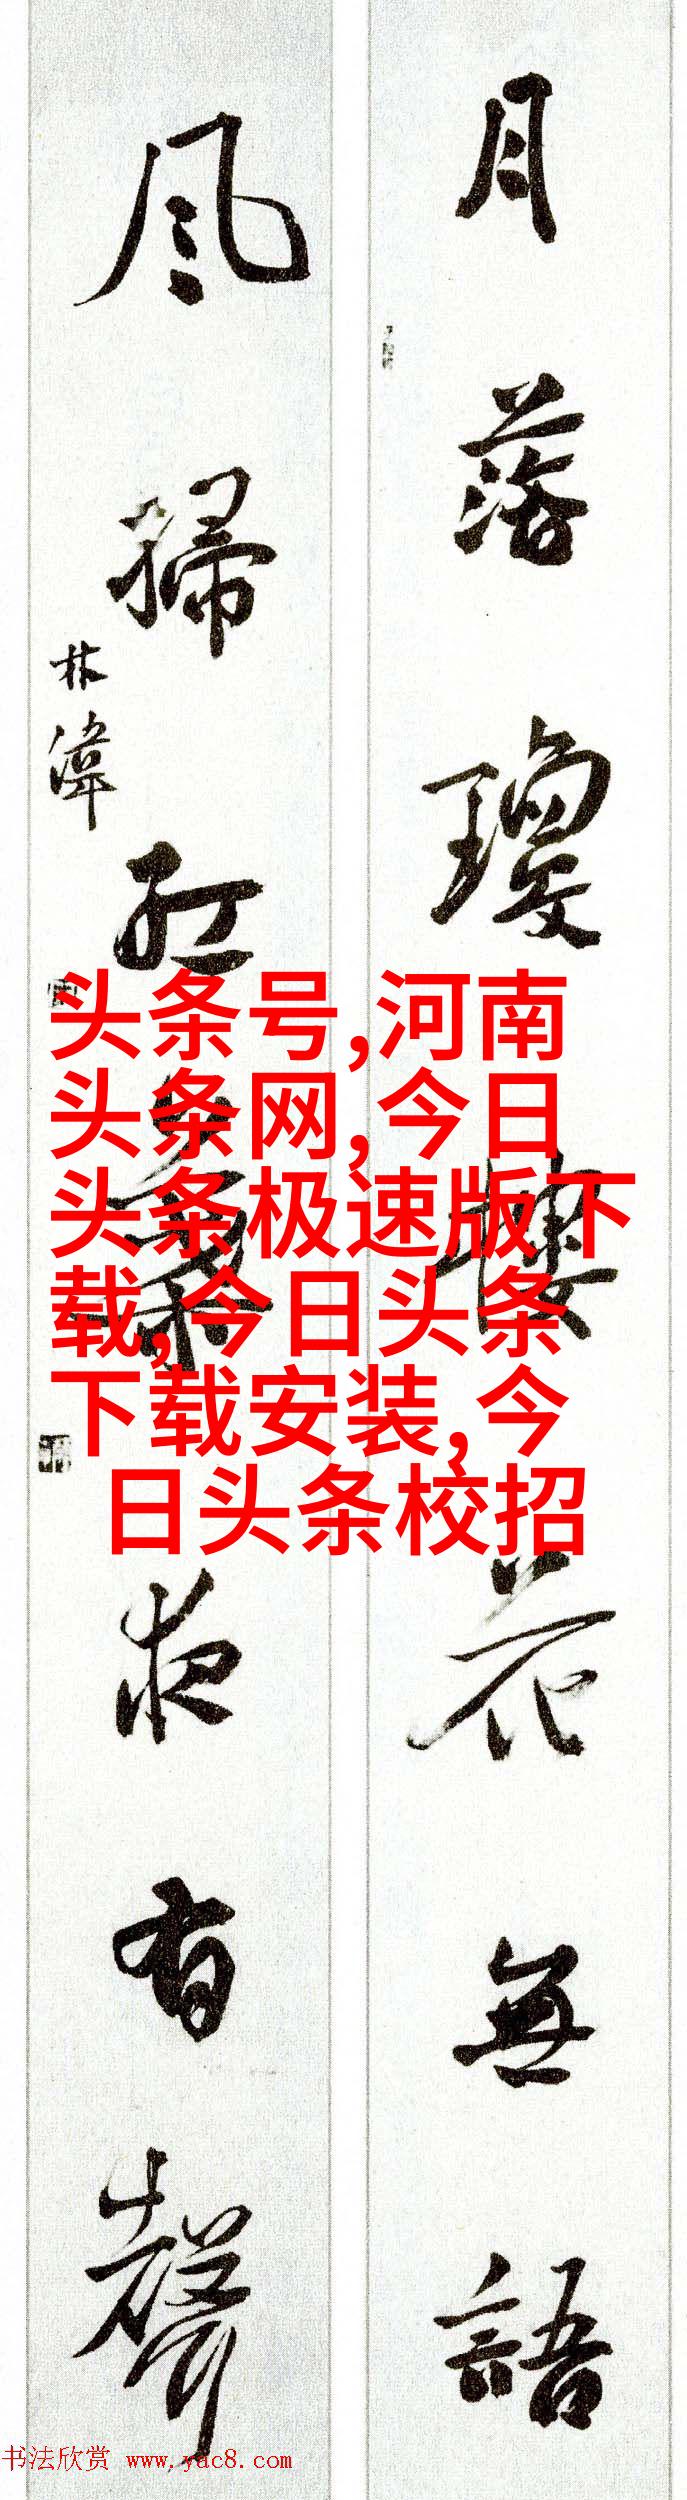 月落瓊樓花無語
風掃紅葉夜有聲
林偉
头条号,河南
头条网,今日
头条极速版下
载,今日头条
下载安装,今
日头条校招
书法欣赏 www.yac8.com